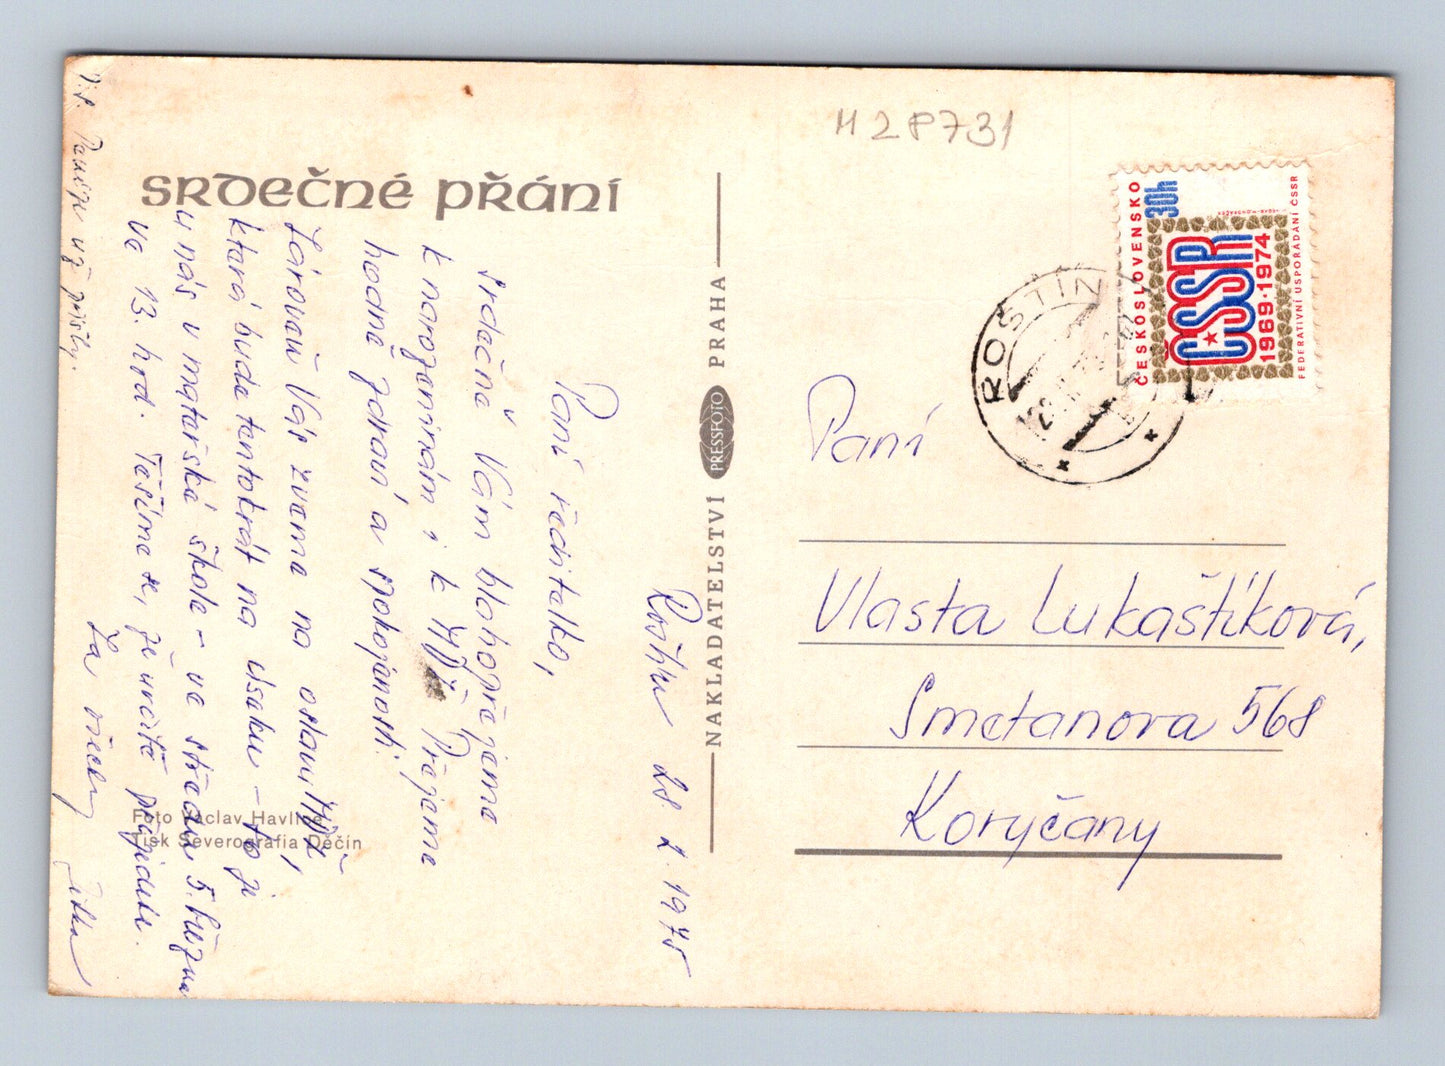 H 28731
SRDEČNÉ PŘÁNÍ
Roštín 28. 2. 1975
Paní ředitelko,
srdečně Vám blahopřejeme
k narozeninám i k MDŽ. Přejeme
hodně zdraví a spokojenosti.
Zároveň Vás zveme na oslavu MDŽ,
která bude tentokrát na úseku – to je
u nás v mateřské škole – ve středu 5. března
ve 13. hod. Těšíme se, že určitě přijdete.
Za všechny Jitka
P.S.
už
Foto Václav Havlíče
Tisk Severografia Děčín
NAKLADATELSTVÍ PRESSFOTO PRAHA
ČESKOSLOVENSKO
30h
ČSSR
1969·1974
FEDERATIVNÍ USPOŘÁDÁNÍ ČSSR
ROŠTÍN
Paní
Vlasta Lukaštíková,
Smetanova 568
Koryčany